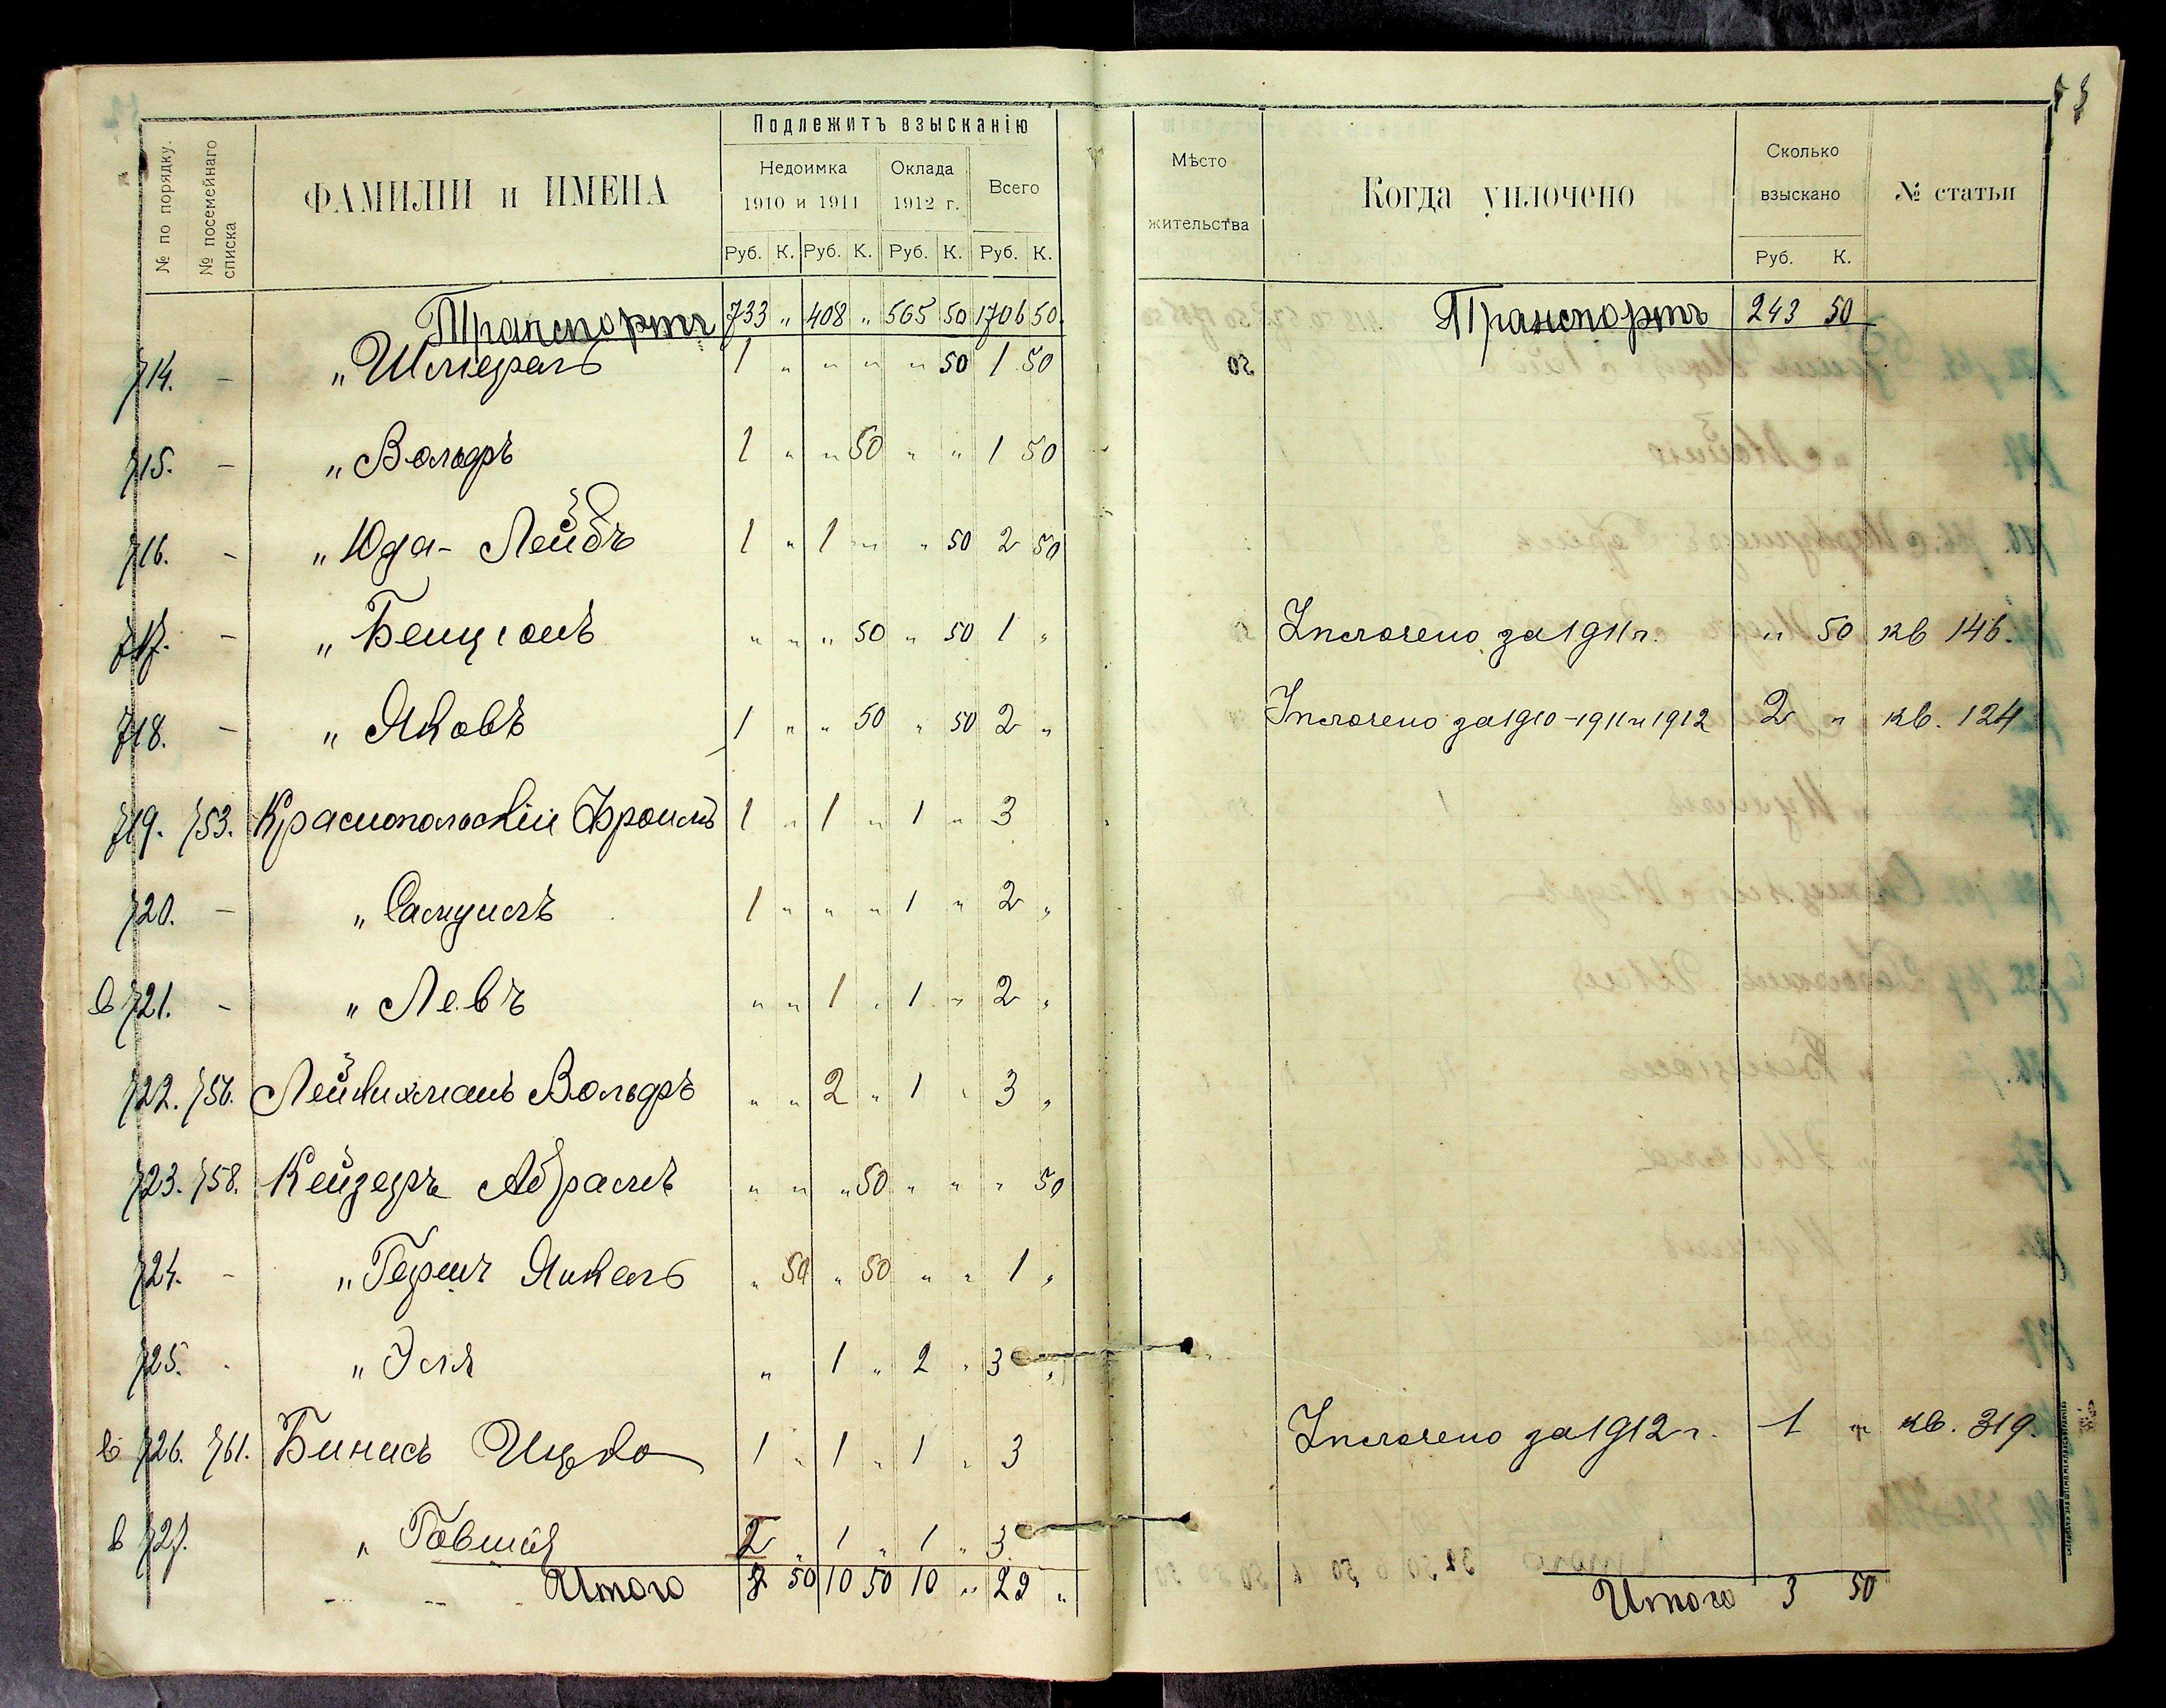 Подлежитъ взысканію
№ по порядку.
№ посемейнаго списка
ФАМИЛІИ и ИМЕНА
Недоимка 1910 и 1911
Оклада 1912 г.
Всего
Руб. К. Руб. К. Руб. К. Руб. К.
Мѣсто жительства
Когда уплочено
Сколько взыскано
Руб. К.
№ статьи
Транспортъ 733 " 408 " 565 50 1706 50 Транспортъ 243 50
714. - " Шмераль 1 " " " " 50 1 50
715. - " Вольфъ 1 " " 50 " " 1 50
716. - " Юда-Лейбъ 1 " 1 " " 50 2 50
717. - " Бенціонъ " " " 50 " 50 1 " Уплочено за 1911 г. " 50 кв 146.
718. - " Яковъ 1 " " 50 " 50 2 " Уплочено за 1910-1911 и 1912 2 " кв. 124
719. 753. Краснопольскій Фроимъ 1 " 1 " 1 " 3
720. - " Самуилъ 1 " " " 1 " 2 "
в 721. - " Левъ " " 1 " 1 " 2 "
722. 756. Лейкихманъ Вольфъ " " 2 " 1 " 3 "
723. 758. Кейзеръ Абрамъ " " " 50 " " " 50
724. - " Гершъ Янкель " 50 " 50 " " 1 "
725. " Эля " 1 " 2 " 3 "
в 726. 761. Бинисъ Ицко 1 " 1 " 1 " 3 Уплочено за 1912 г. 1 " кв. 319.
в 727. " 1 " 1 " 3
Итого 50 10 50 10 " 29 " Итого 3 50